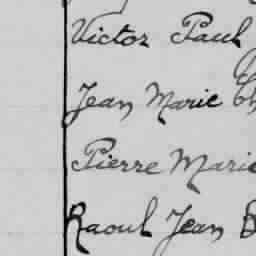 Victor Paul
Jean Marie
Pierre Marie
Raoul Jean